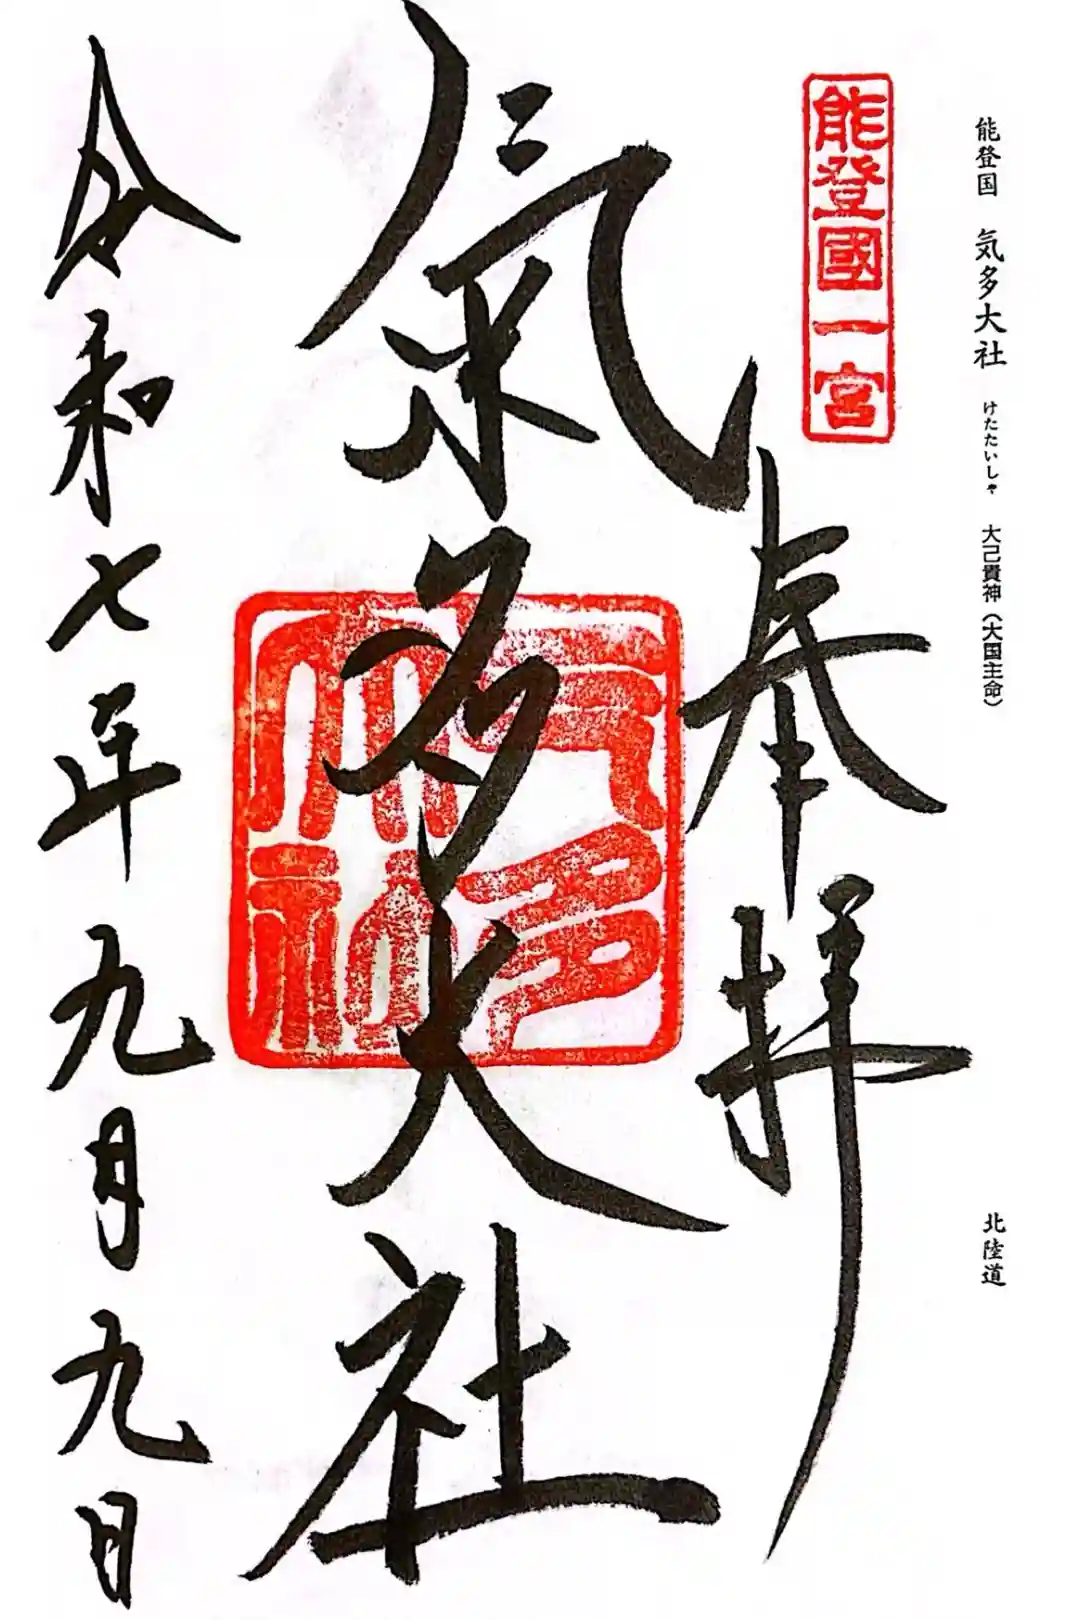 能登国 気多大社 けたたいしゃ 大己貴神（大国主命） 北陸道
能登國一宮
奉拝
氣多大社
気多大社
令和七年九月九日